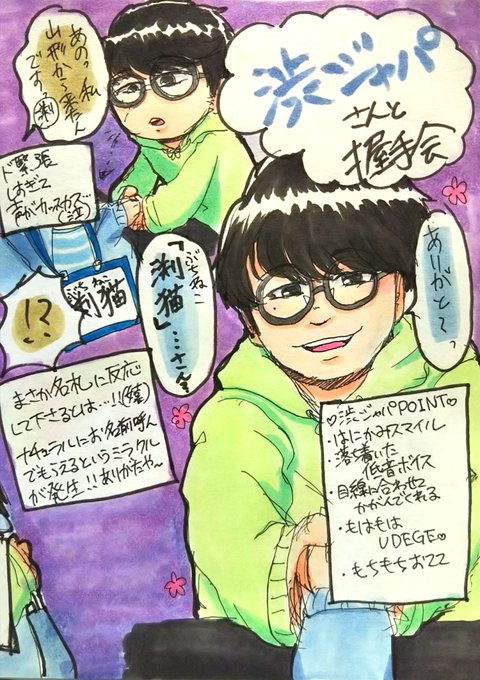 渋ジャパ
さんと
握手会
あの、私
山形から来た
です。
ド緊張
しすぎて
声がカッスカス…
(泣)
剥猫
!?
ぶちねこ
「剥猫」…さん
ありがと〜っ
まさか名札に反応
して下さるとは…!!(嬉)
ナチュラルにお名前呼ん
でもらえるというミラクル
が発生!!ありがたや〜
♡渋ジャパPOINT♡
・はにかみスマイル
・落ち着いた
低音ボイス
・目線に合わせて
かがんでくれる
・もはもは
UDEGE♡
・もちもちおてて